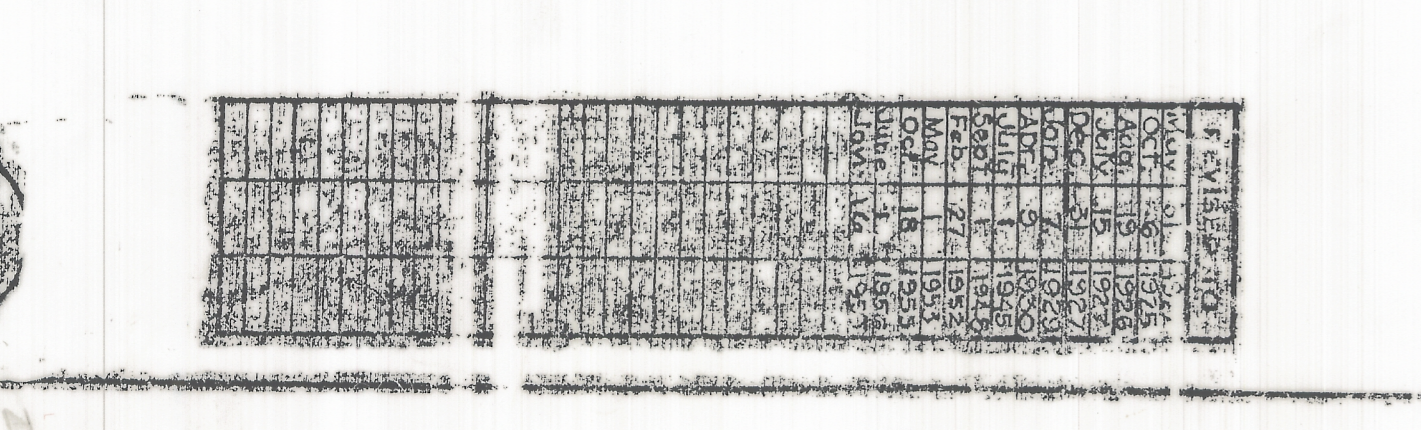 REVISED TO
May 31
Oct. 26 1925
Aug 19 1926
July 15 1927
Dec. 31 1927
Jan. 7 1929
Apr. 9 1930
July 1 1945
Sept 1
Feb. 27 1952
May 1 1953
Oct. 18 1955
June 1
Jan.